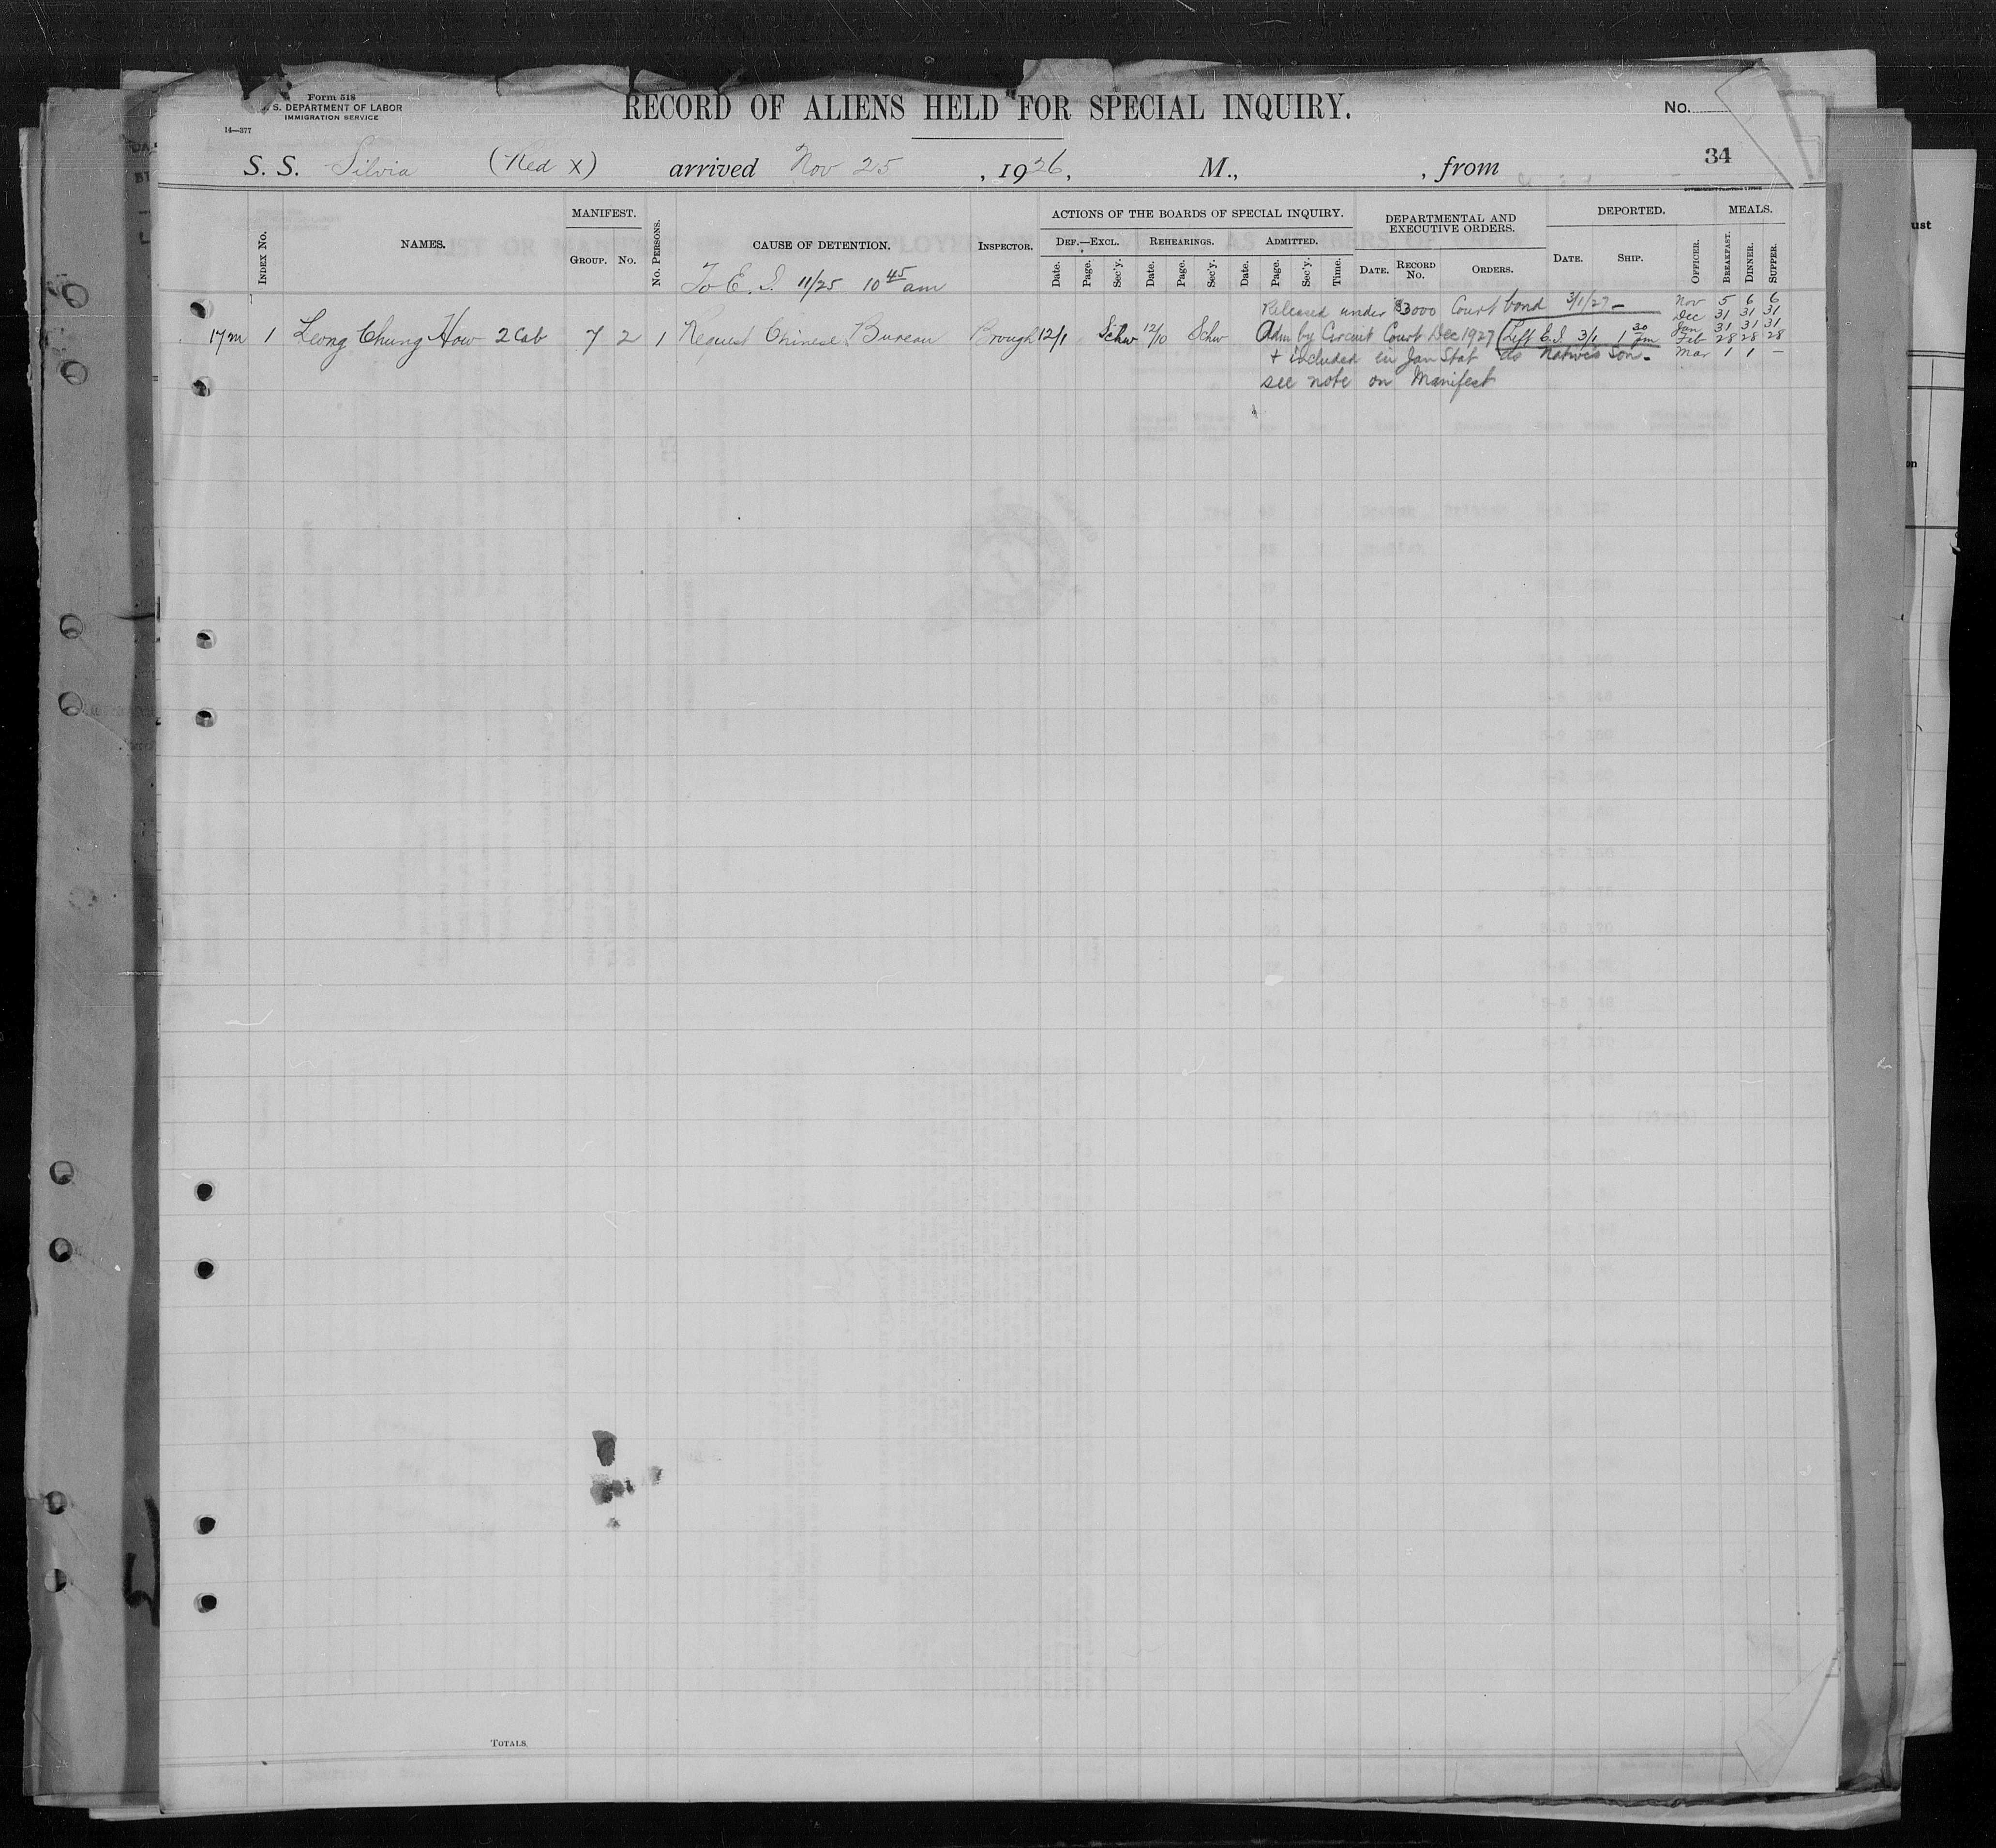 Form 518
S. DEPARTMENT OF LABOR
IMMIGRATION SERVICE
14—377
RECORD OF ALIENS HELD FOR SPECIAL INQUIRY.
No.
34
S. S. Silvia (Red X) arrived Nov 25, 1926, M., , from
INDEX No.
NAMES.
MANIFEST.
GROUP. No.
No. PERSONS.
CAUSE OF DETENTION.
To E. I. 11/25 10 45 am
INSPECTOR.
ACTIONS OF THE BOARDS OF SPECIAL INQUIRY.
DEF.—EXCL. REHEARINGS. ADMITTED.
Date. Page. Sec'y. Date. Page. Sec'y. Date. Page. Sec'y. Time.
DEPARTMENTAL AND
EXECUTIVE ORDERS.
DATE. RECORD No. ORDERS.
DEPORTED.
DATE. SHIP.
OFFICER.
MEALS.
BREAKFAST. DINNER. SUPPER.
Released under $3000 Court bond 3/1/27 –
17m 1 Leong Chung How 2 Cab 7 2 1 Request Chinese Bureau Brough 12/1 Schw 12/10 Schw Adm by Circuit Court Dec 1927 Left E.I. 3/1 1 30 pm
+ included in Jan Stat as Native's Son.
see note on Manifest
Nov 5 6 6
Dec 31 31 31
Jan 31 31 31
Feb 28 28 28
Mar 1 1 –
TOTALS
ust
on